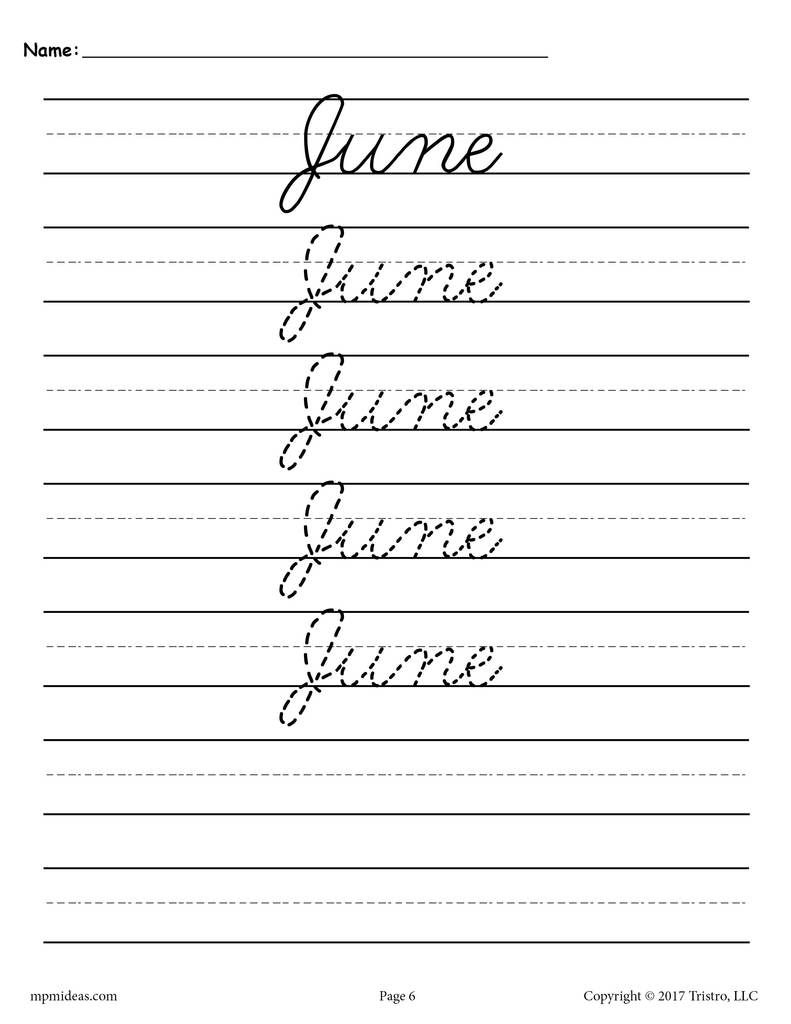 Name:
June
June
June
June
June
mpmideas.com Page 6 Copyright © 2017 Tristro, LLC